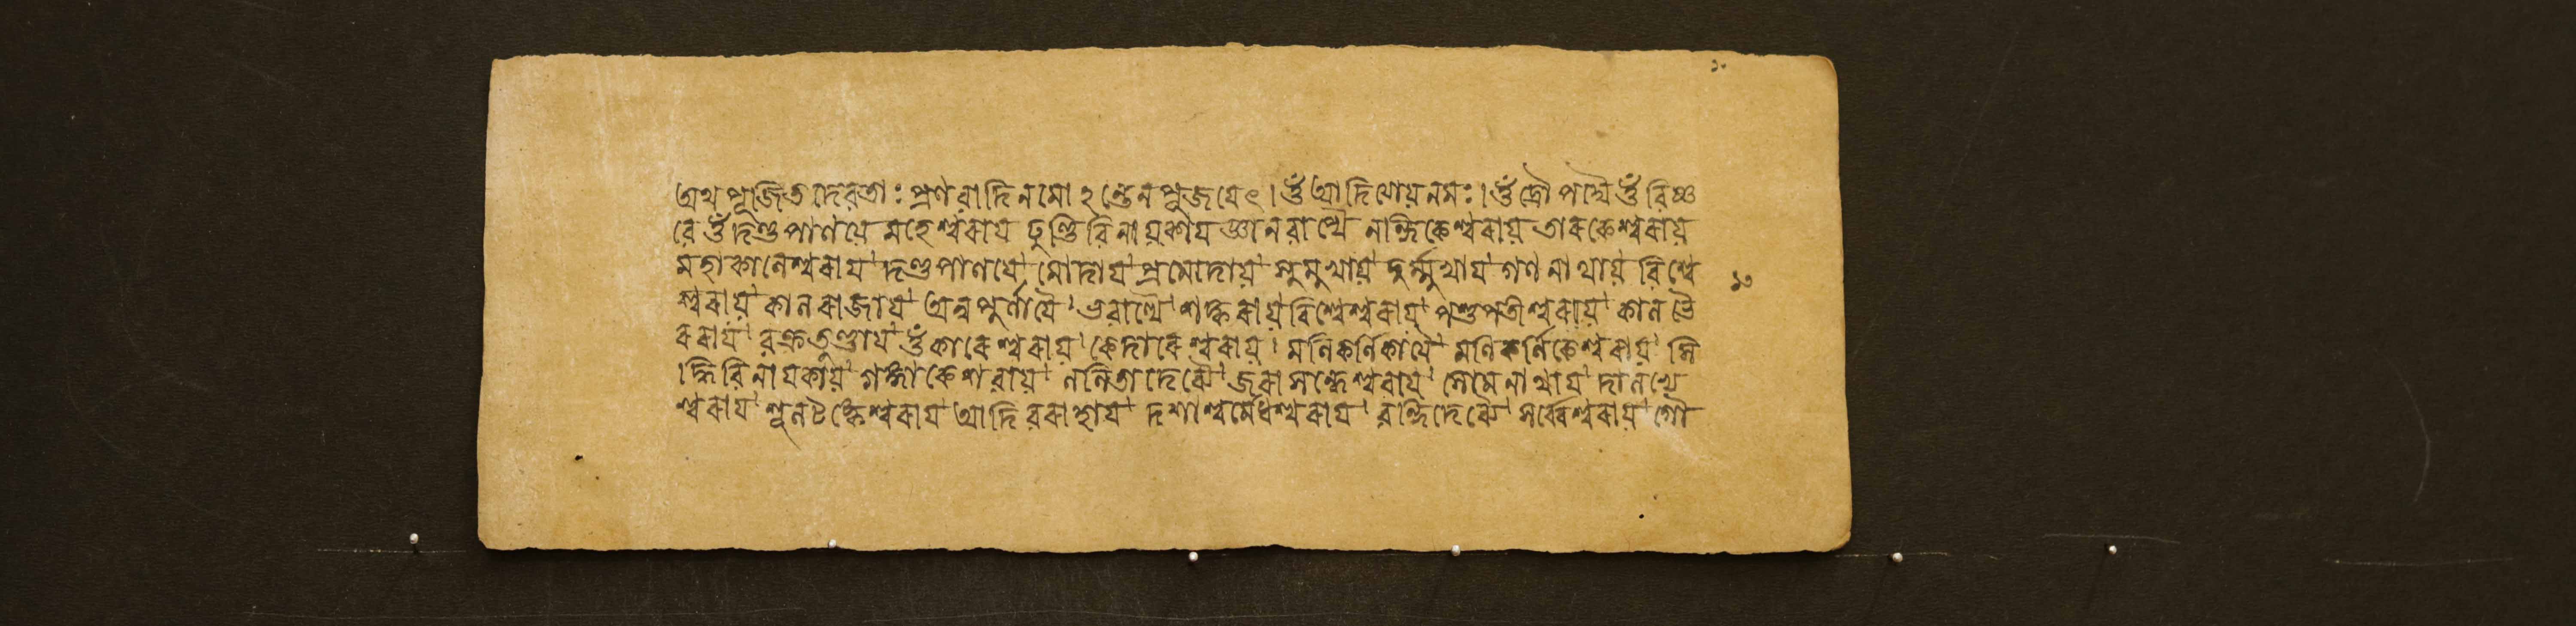 ১০
অথ পূজিত দেৱতাঃ প্রণৱাদি নমো ২ ন্তেন পুজয়েৎ । ওঁ আদিত্যায় নমঃ । ওঁ দ্রৌপদ্যৈ ওঁ ৱিষ্ণ
ৱে ওঁ দণ্ডপাণয়ে মহেশ্বৰায় ঢুণ্ডিৱিনায়কায় জ্ঞানৱাপ্যৈ নন্দিকেশ্বৰায় তাৰকেশ্বৰায়
মহাকালেশ্বৰায় । দণ্ডপাণয়ে । মোদায় । প্রমোদায় । সুমুখায় । দুর্ম্মুখায় । গণনাথায় ৱিশ্বে
শ্বৰায় । কালৰাজায় । অন্নপুর্ণায়ৈ । ভৱান্যৈ । শঙ্কৰায় ৱিশ্বেশ্বৰায় । পশুপতীশ্বৰায় । কালভৈ
ৰৱায় । ৱক্রতুণ্ডায় ওঁকাৰেশ্বৰায় । কেদাৰেশ্বৰায় । মণিকর্ণিকায়ৈ । মণিকর্ণিকেশ্বৰায় । সি
দ্ধিৱিনায়কায় । গঙ্গাকেশৱায় । ললিতাদেৱ্যৈ । জৰাসন্ধেশ্বৰায় । সোমনাথায় । দালভ্যে
শ্বৰায় । শূলটঙ্কেশ্বৰায় আদিৱৰাহায় । দশাশ্বমেধেশ্বৰায় । ৱন্দিদেৱ্যৈ । সর্ৱ্বেশ্বৰায় । গৌ
১০